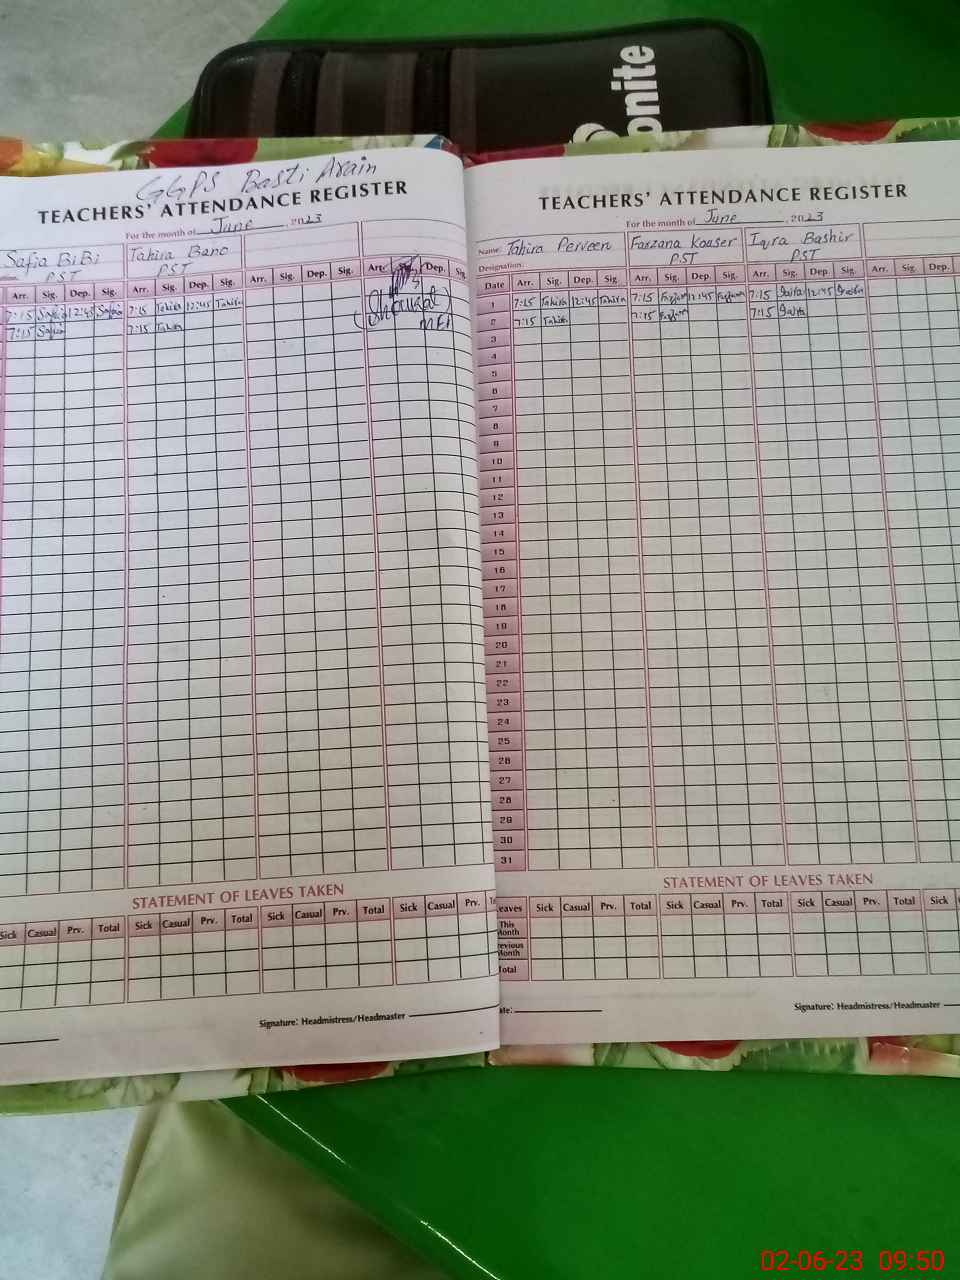 onite
GGPS Basti Arain
TEACHERS' ATTENDANCE REGISTER
For the month of June, 2023
Safia BiBi Tahira Bano
PST PST
Arr. Sig. Dep. Sig. Arr. Sig. Dep. Sig. Arr. Sig. Dep. Sig. Arr. Dep. Sig.
7:15 Safia 12:45 Safia 7:15 Tahira 12:45 Tahira
7:15 Safia 7:15 Tahira
STATEMENT OF LEAVES TAKEN
Sick Casual Prv. Total Sick Casual Prv. Total Sick Casual Prv. Total Sick Casual Prv.
Signature: Headmistress/Headmaster
TEACHERS' ATTENDANCE REGISTER
For the month of June, 2023
Name: Tahira Perveen Farzana Kousar Iqra Bashir
Designation: PST PST
Date Arr. Sig. Dep. Sig. Arr. Sig. Dep. Sig. Arr. Sig. Dep. Sig. Arr. Sig. Dep.
1 7:15 Tahira 12:45 Tahira 7:15 12:45 7:15 12:45
2 7:15 Tahira 7:15 7:15
3
4
5
6
7
8
9
10
11
12
13
14
15
16
17
18
19
20
21
22
23
24
25
26
27
28
29
30
31
STATEMENT OF LEAVES TAKEN
Leaves Sick Casual Prv. Total Sick Casual Prv. Total Sick Casual Prv. Total Sick
This Month
Previous Month
Total
Date:
Signature: Headmistress/Headmaster
02-06-23 09:50